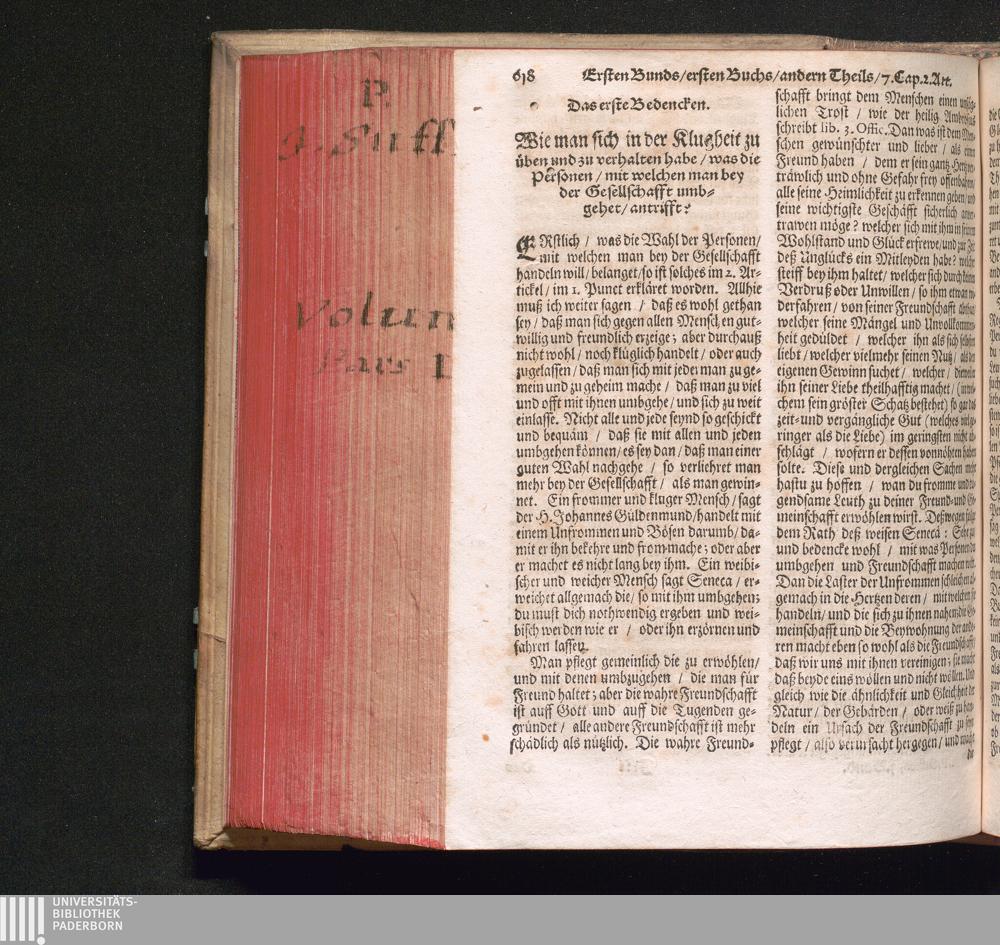 P.
J. Suff
Volum
Pars I
618 Ersten Bunds/ersten Buchs/andern Theils/7.Cap.2.Art.
Das erste Bedencken.
Wie man sich in der Klugheit zu
üben und zu verhalten habe / was die
Personen / mit welchen man bey
der Gesellschafft umb-
gehet/ antrifft?
ERstlich / was die Wahl der Personen/
mit welchen man bey der Gesellschafft
handeln will/ belanget/so ist solches im 2. Ar-
tickel/ im 1. Punct erkläret worden. Allhie
muß ich weiter sagen / daß es wohl gethan
sey / daß man sich gegen allen Menschen gut-
willig und freundlich erzeige; aber durchauß
nicht wohl / noch klüglich handelt / oder auch
zugelassen / daß man sich mit jederman zu ge-
mein und zu geheim mache / daß man zu viel
und offt mit ihnen umbgehe / und sich zu weit
einlasse. Nicht alle und jede seynd so geschickt
und bequäm / daß sie mit allen und jeden
umbgehen können/ es sey dan / daß man einer
guten Wahl nachgehe / so verliehret man
mehr bey der Gesellschafft / als man gewin-
net. Ein frommer und kluger Mensch / sagt
der H. Johannes Güldenmund/handelt mit
einem Unfrommen und Bösen darumb/ da-
mit er ihn bekehre und from-mache; oder aber
er machet es nicht lang bey ihm. Ein weibi-
scher und weicher Mensch sagt Seneca / er-
weichet allgemach die/ so mit ihm umbgehen;
du must dich nothwendig ergeben und wei-
bisch werden wie er / oder ihn erzörnen und
fahren lassen.
Man pflegt gemeinlich die zu erwöhlen/
und mit denen umbzugehen / die man für
Freund haltet; aber die wahre Freundschafft
ist auff Gott und auff die Tugenden ge-
gründet / alle andere Freundschafft ist mehr
schädlich als nützlich. Die wahre Freund-
schafft bringt dem Menschen einen
lichen Trost / wie der heilig Ambrosius
schreibt lib. 3. Offic. Dan was ist dem Men-
schen gewünschter und lieber / als einen
Freund haben / dem er sein gantz Hertz ver-
träwlich und ohne Gefahr frey offenbahren/
alle seine Heimlichkeit zu erkennen geben/ und
seine wichtigste Geschäfft sicherlich anver-
trawen möge? welcher sich mit ihm in seinem
Wohlstand und Glück erfrewe/und zur Zeit
deß Unglücks ein Mitleyden habe? welcher
steiff bey ihm haltet/ welcher sich durch keinen
Verdruß oder Unwillen / so ihm etwan
derfahren / von seiner Freundschafft
welcher seine Mängel und Unvollkommen-
heit gedüldet / welcher ihn als sich selbsten
liebt / welcher vielmehr seinen Nutz / als den
eigenen Gewinn suchet / welcher / dieweil er
ihn seiner Liebe theilhafftig machet / (in wel-
chem sein gröster Schatz bestehet) so gar das
zeit- und vergängliche Gut (welches viel ge-
ringer als die Liebe) im geringsten nicht ab-
schlägt / wofern er dessen vonnöhten haben
solte. Diese und dergleichen Sachen mehr
hastu zu hoffen / wan du fromme und tu-
gendsame Leuth zu deiner Freund- und Ge-
meinschafft erwöhlen wirst. Deßwegen folge
dem Rath deß weisen Seneca : Sehe zu
und bedencke wohl / mit was Personen du
umbgehen und Freundschafft machen wilt.
Dan die Laster der Unfrommen schleichen all-
gemach in die Hertzen deren / mit welchen sie
handeln/ und die sich zu ihnen nahen: die Ge-
meinschafft und die Beywohnung der ande-
ren macht eben so wohl als die Freundschafft/
daß wir uns mit ihnen vereinigen; sie macht
daß beyde eins wöllen und nicht wöllen. Und
gleich wie die ähnlichkeit und Gleichheit der
Natur / der Gebärden / oder weiß zu han-
deln ein Ursach der Freundschafft zu seyn
pflegt / also verursacht hergegen / und macht
UNIVERSITÄTS-
BIBLIOTHEK
PADERBORN